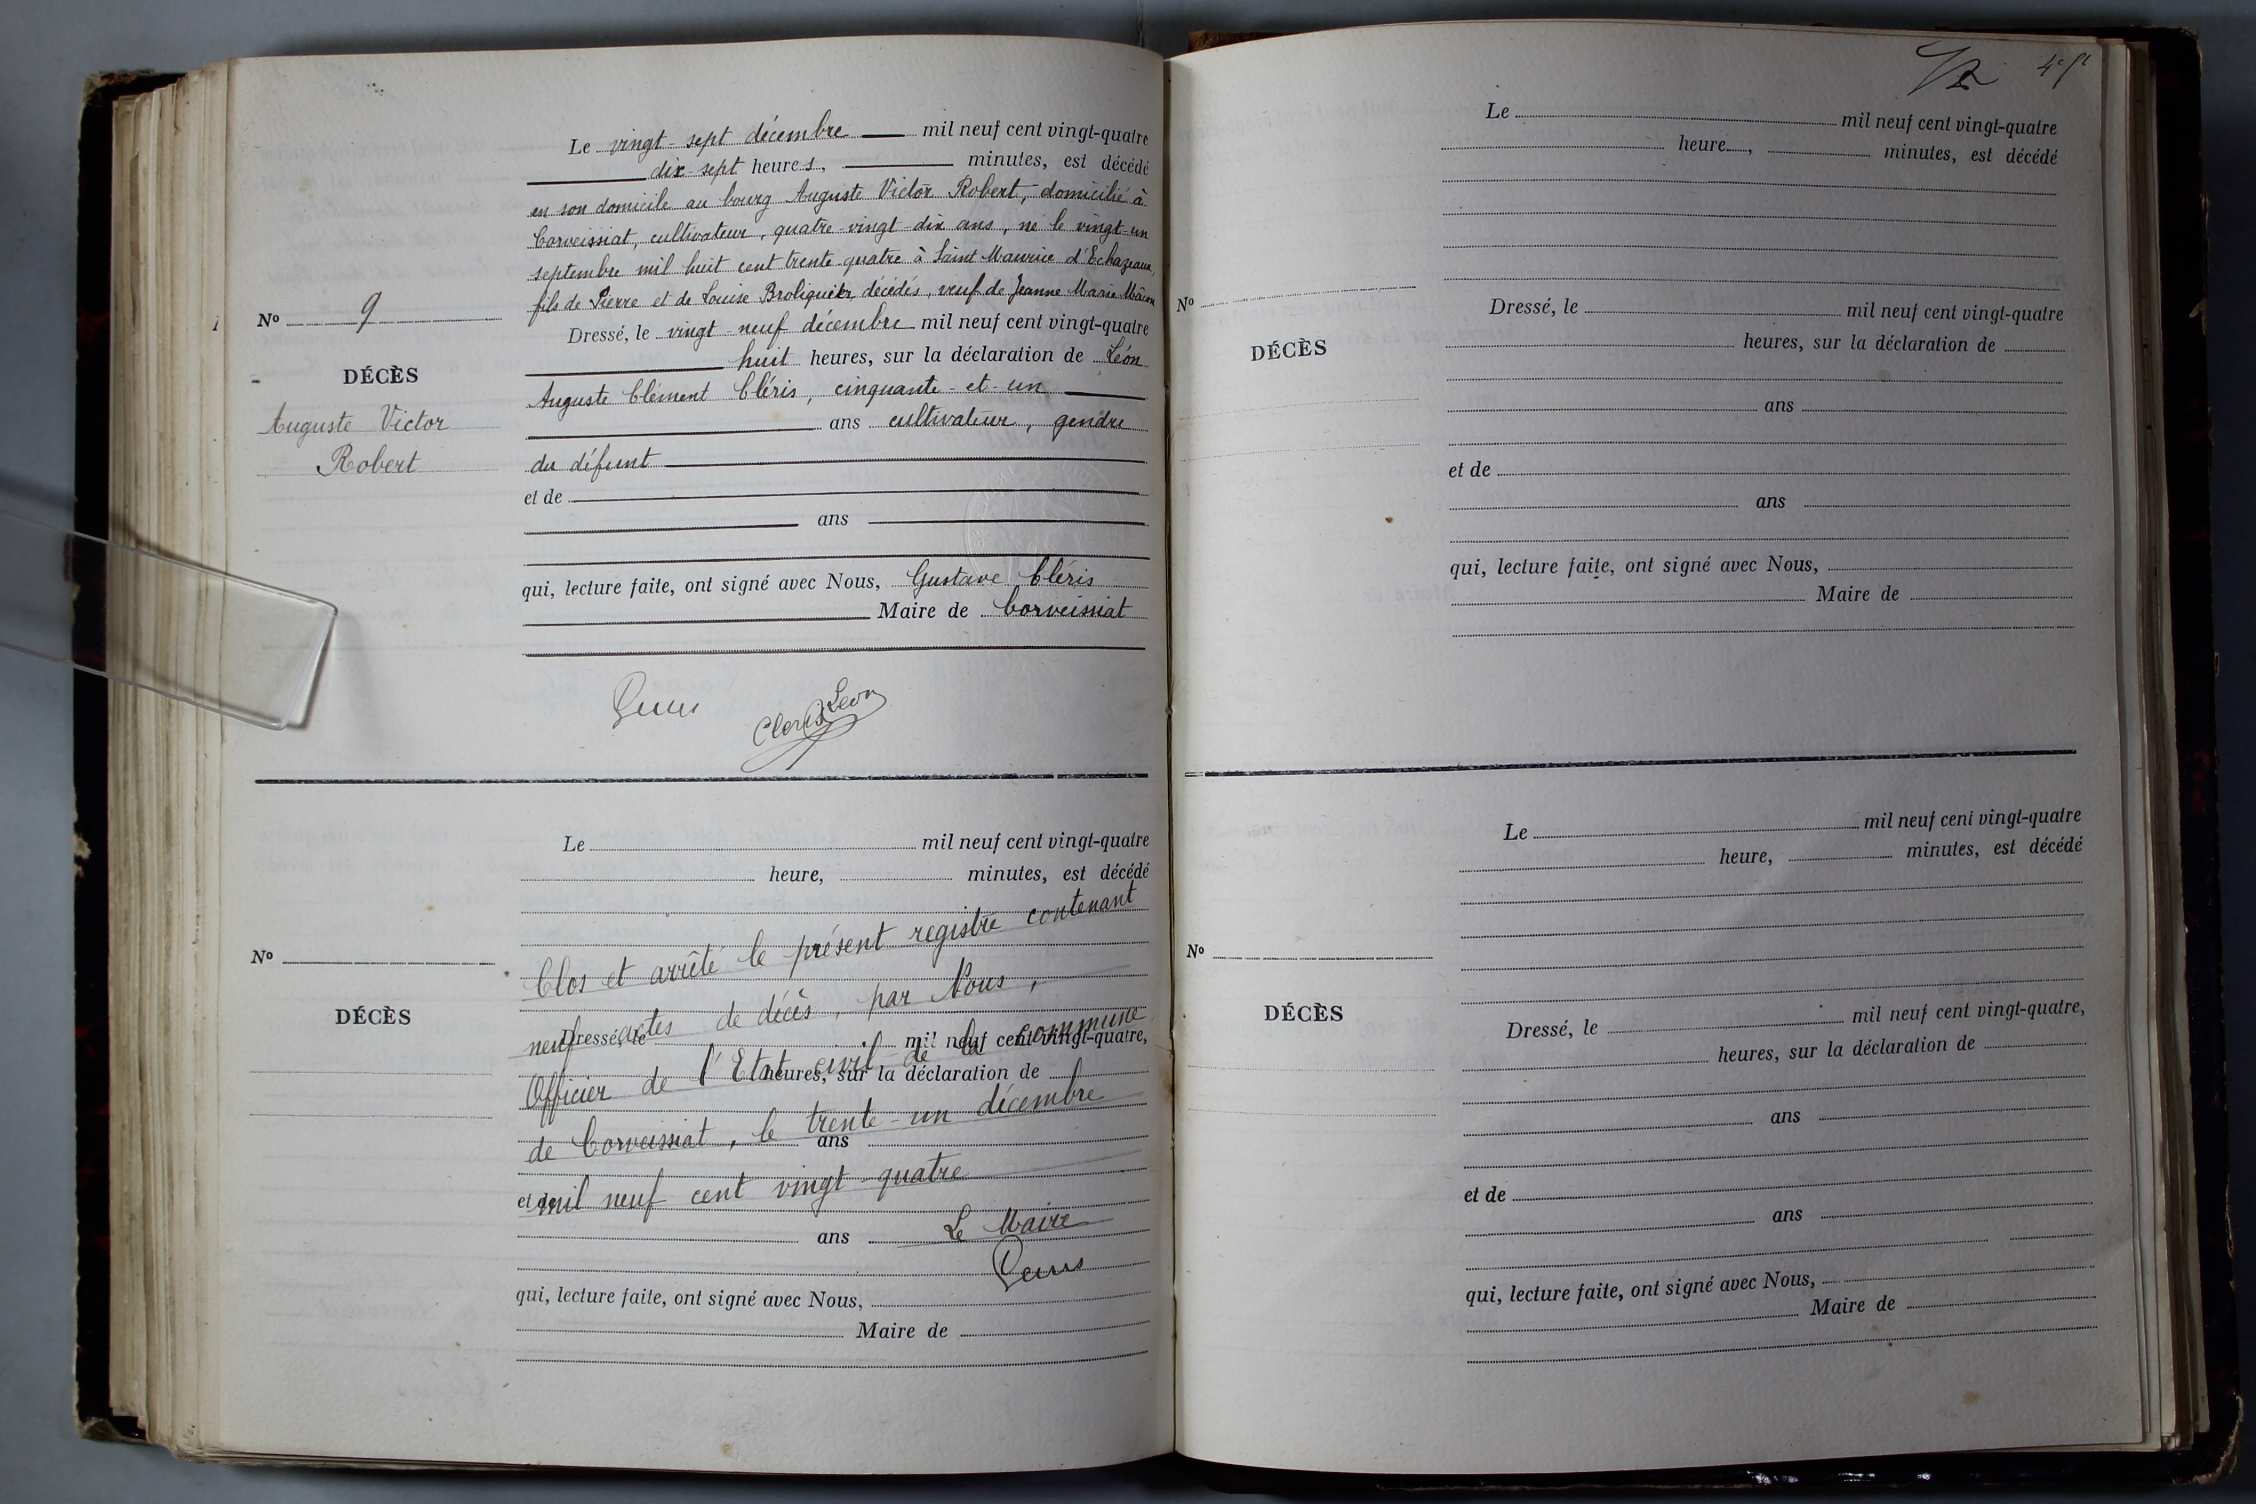 Le vingt-sept décembre mil neuf cent vingt-quatre
dix-sept heures, minutes, est décédé
en son domicile au bourg Auguste Victor Robert, domicilié à
Corveissiat, cultivateur, quatre-vingt-dix ans, né le vingt-un
septembre mil huit cent trente-quatre à Saint Maurice d'Echazeaux,
fils de Pierre et de Louise décédés, veuf de Jeanne Marie
Dressé, le vingt-neuf décembre mil neuf cent vingt-quatre
huit heures, sur la déclaration de Léon
Auguste Clément Cléris, cinquante-et-un
ans cultivateur, gendre
du défunt
et de
ans
qui, lecture faite, ont signé avec Nous, Gustave Cléris
Maire de Corveissiat
Cleris Léon
No 9
DÉCÈS
Auguste Victor
Robert
Le mil neuf cent vingt-quatre
heure, minutes, est décédé
Clos et arrêté le présent registre contenant
neuf actes de décès, par Nous,
Dressé, le mil neuf cent vingt-quatre,
Officier de l'Etat civil de la commune
heures, sur la déclaration de
de Corveissiat, le trente-un décembre
ans
et de
mil neuf cent vingt-quatre
ans Le Maire
qui, lecture faite, ont signé avec Nous,
Maire de
No
DÉCÈS
Le mil neuf cent vingt-quatre
heure, minutes, est décédé
No
DÉCÈS
Dressé, le mil neuf cent vingt-quatre
heures, sur la déclaration de
ans
et de
ans
qui, lecture faite, ont signé avec Nous,
Maire de
Le mil neuf cent vingt-quatre
heure, minutes, est décédé
No
DÉCÈS
Dressé, le mil neuf cent vingt-quatre,
heures, sur la déclaration de
ans
et de
ans
qui, lecture faite, ont signé avec Nous,
Maire de